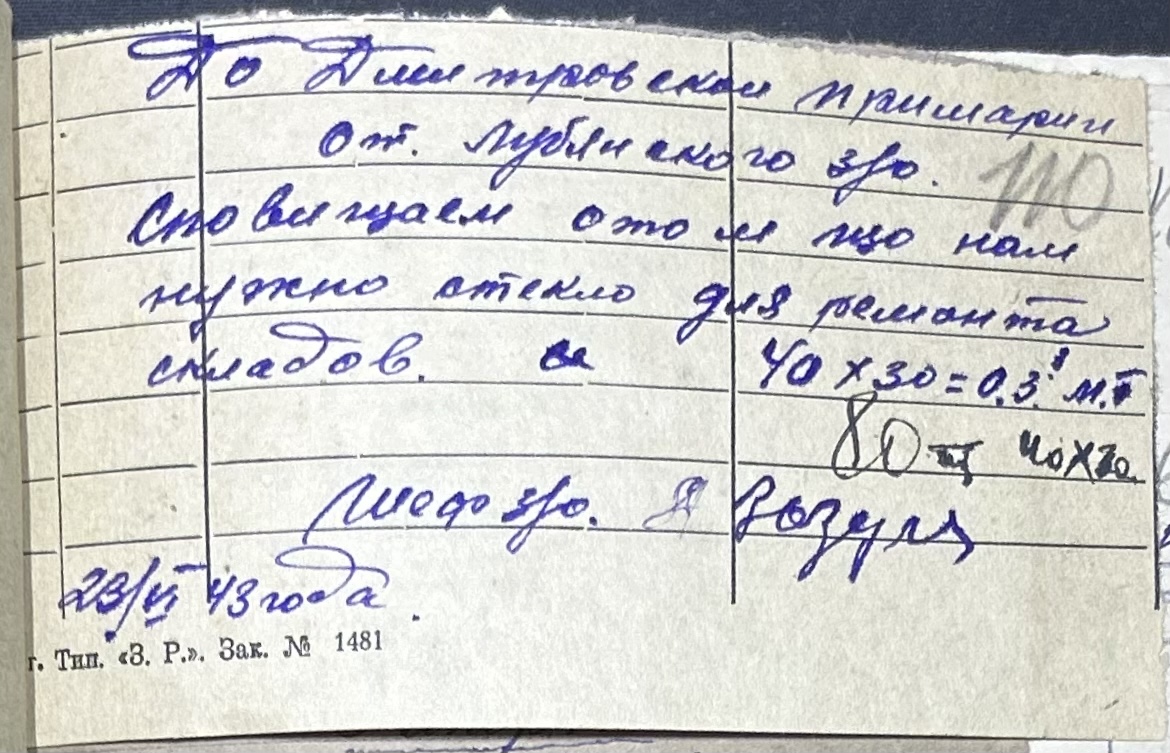 До Дмитровскои примарии
от. Лубянского зро.
110
Споввищаем отом що нам
нужно стекло для ремонта
складов. 40 х 30 = 0.3 м.
80 шт 40х30
Шеф зро. Возуля
23/VI 43 года.
г. Тип. «З. Р.». Зак. № 1481